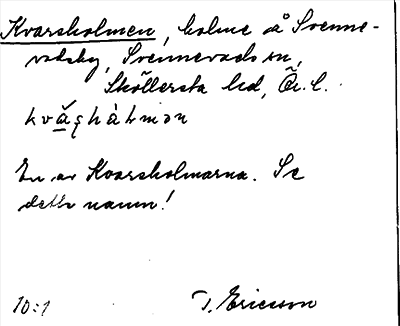 Kvarsholmen, holme å Svenne-
vadsby, Svennevads sn,
Sköllersta hd, Ör. l.
En av Kvarsholmarna. Se
detta namn!
10:1 T. Ericsson